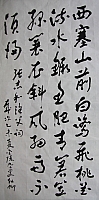 西塞山前白鹭飞桃花
流水鳜鱼肥青箬笠
绿蓑衣斜风细雨不
须归
张志和渔父词